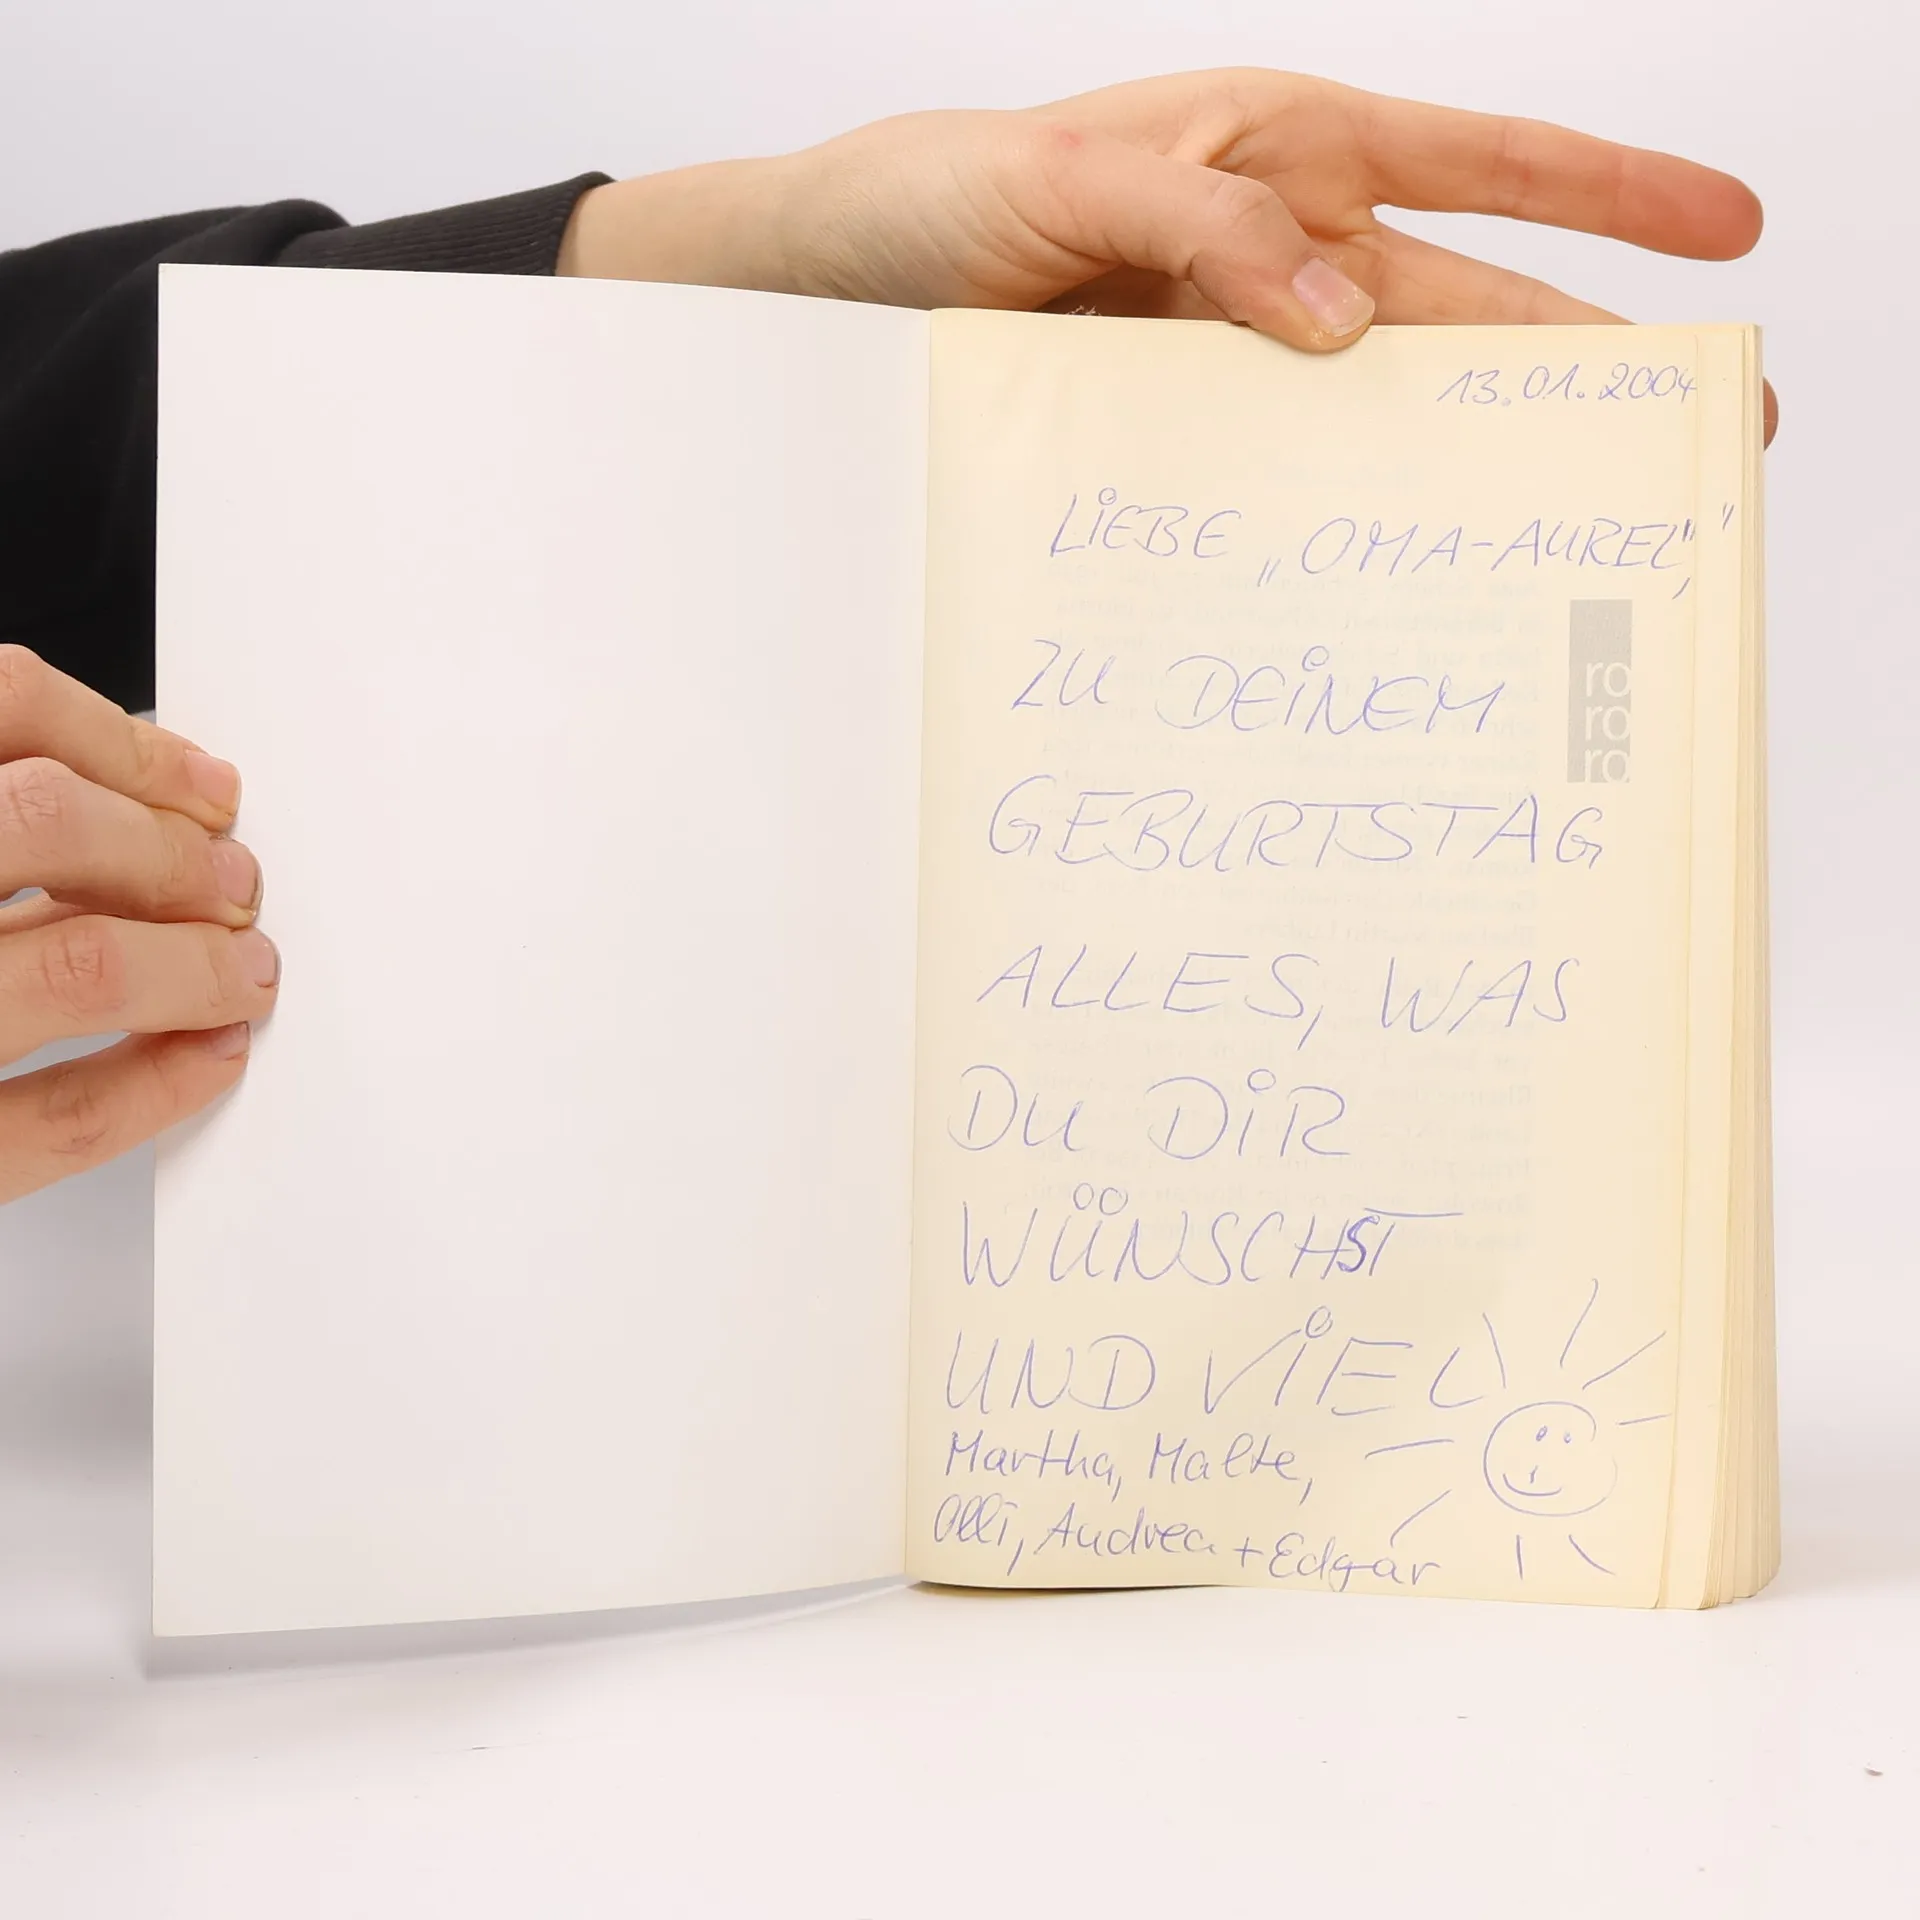 13.01.2004
LiEBE „OMA-AUREL",
ZU DEiNEM
GEBURTSTAG
ALLES, WAS
DU DiR
WÜNSCHST
UND ViEL
Martha, Malte,
Olli, Andrea + Edgar
ro
ro
ro